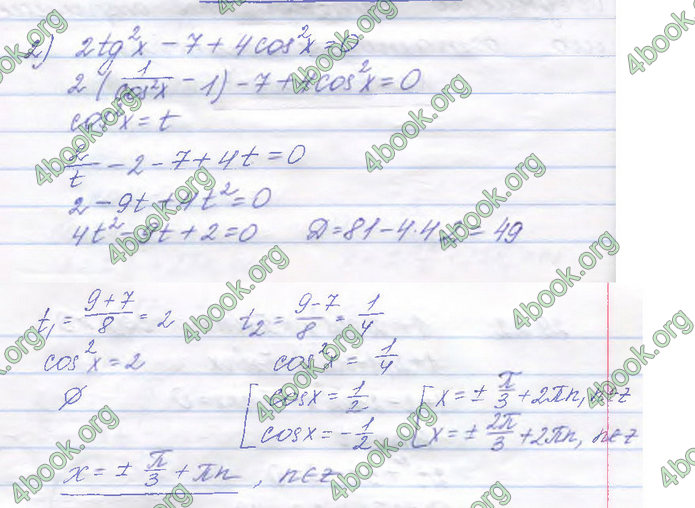 2) 2tg²x − 7 + 4cos²x = 0
2(1/cos²x − 1) − 7 + 4cos²x = 0
cos²x = t
2/t − 2 − 7 + 4t = 0
2 − 9t + 4t² = 0
4t² − 9t + 2 = 0   D = 81 − 4·4·2 = 49
t₁ = (9+7)/8 = 2   t₂ = (9−7)/8 = 1/4
cos²x = 2   cos²x = 1/4
∅   [cosx = 1/2   [x = ± π/3 + 2πn, n∈z
cosx = −1/2   x = ± 2π/3 + 2πn, n∈z
x = ± π/3 + πn, n∈z
4book.org